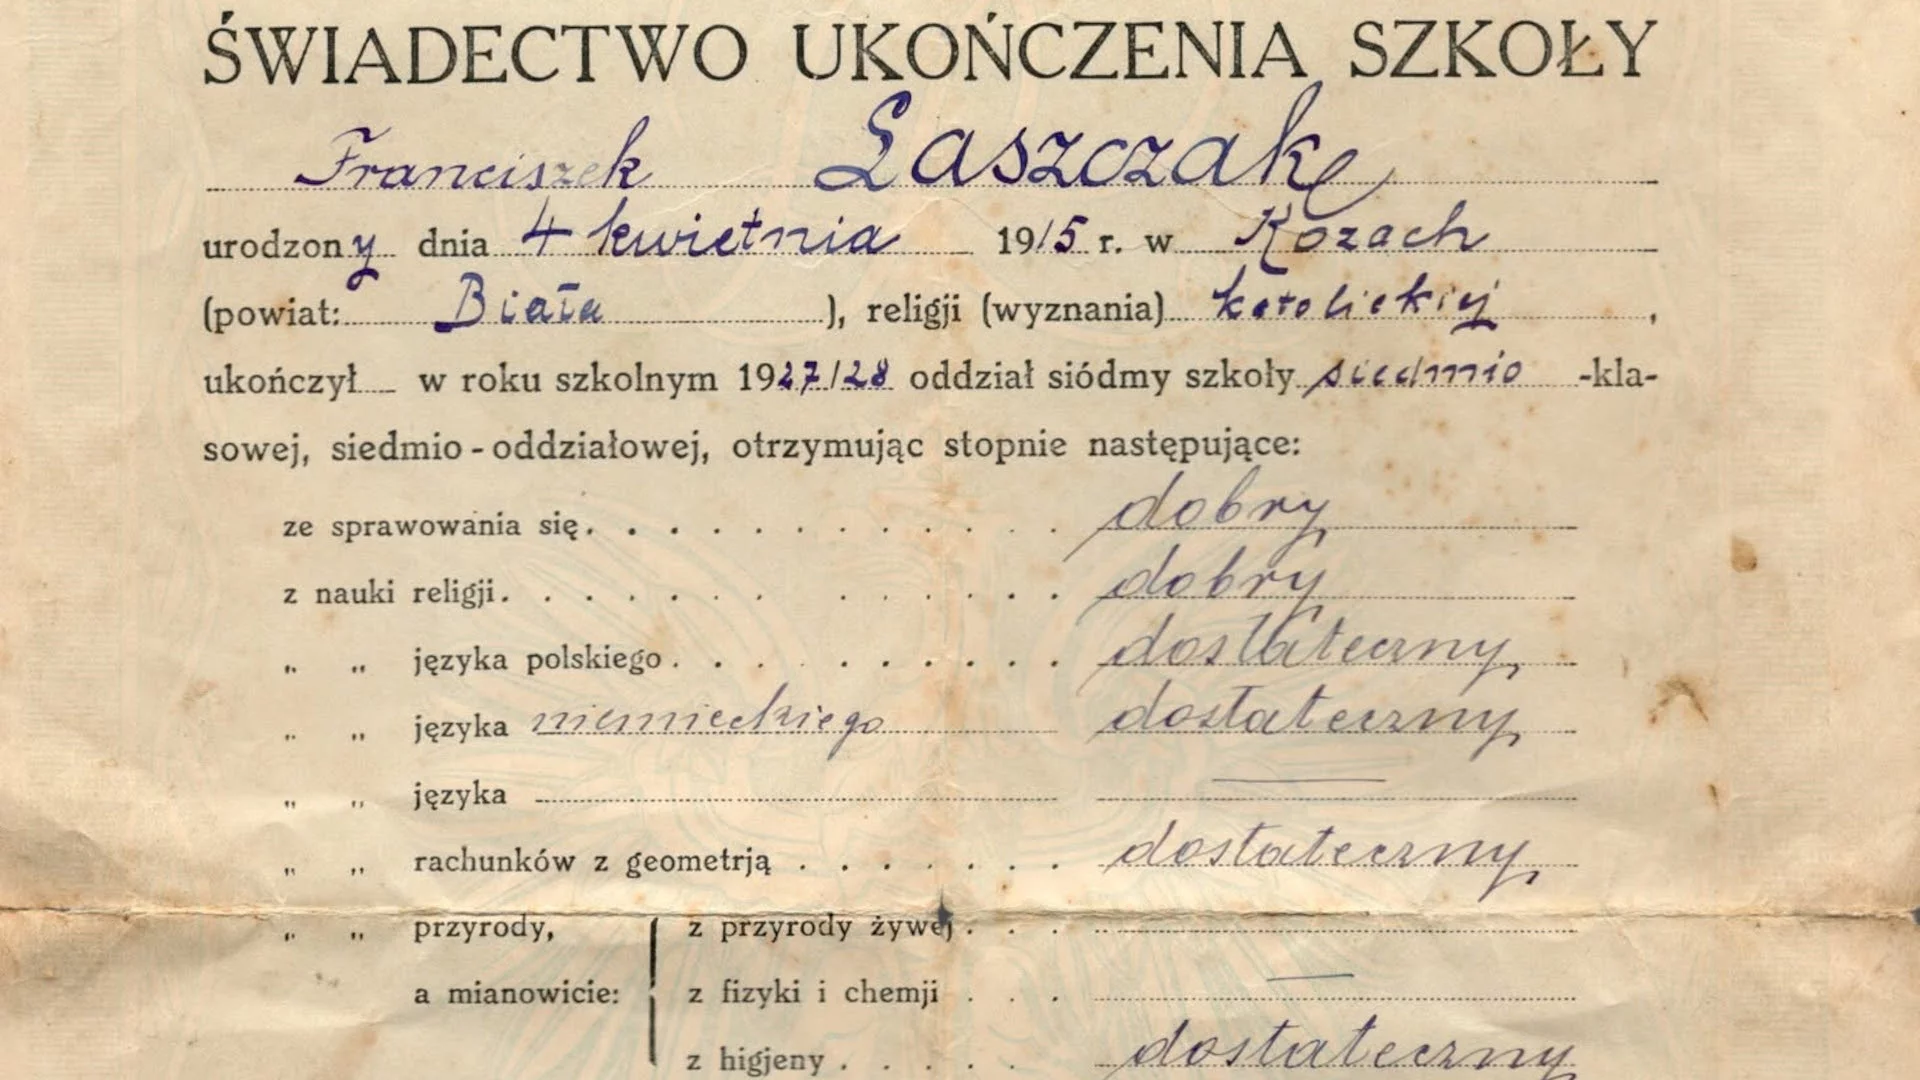 ŚWIADECTWO UKOŃCZENIA SZKOŁY
Franciszek Laszczak
urodzony dnia 4 kwietnia 1915 r. w Kozach
(powiat: Biała), religji (wyznania) katolickiej,
ukończył w roku szkolnym 1927/28 oddział siódmy szkoły siedmio -kla-
sowej, siedmio-oddziałowej, otrzymując stopnie następujące:
ze sprawowania się. . . . . . . . . . . . dobry
z nauki religji. . . . . . . . . . . . . dobry
„ „ języka polskiego . . . . . . . . . . dostateczny
„ „ języka niemieckiego dostateczny
„ „ języka —
„ „ rachunków z geometrją . . . . . . . dostateczny
„ „ przyrody, z przyrody żywej . . .
a mianowicie: z fizyki i chemji . . . —
z higjeny . . . . . dostateczny